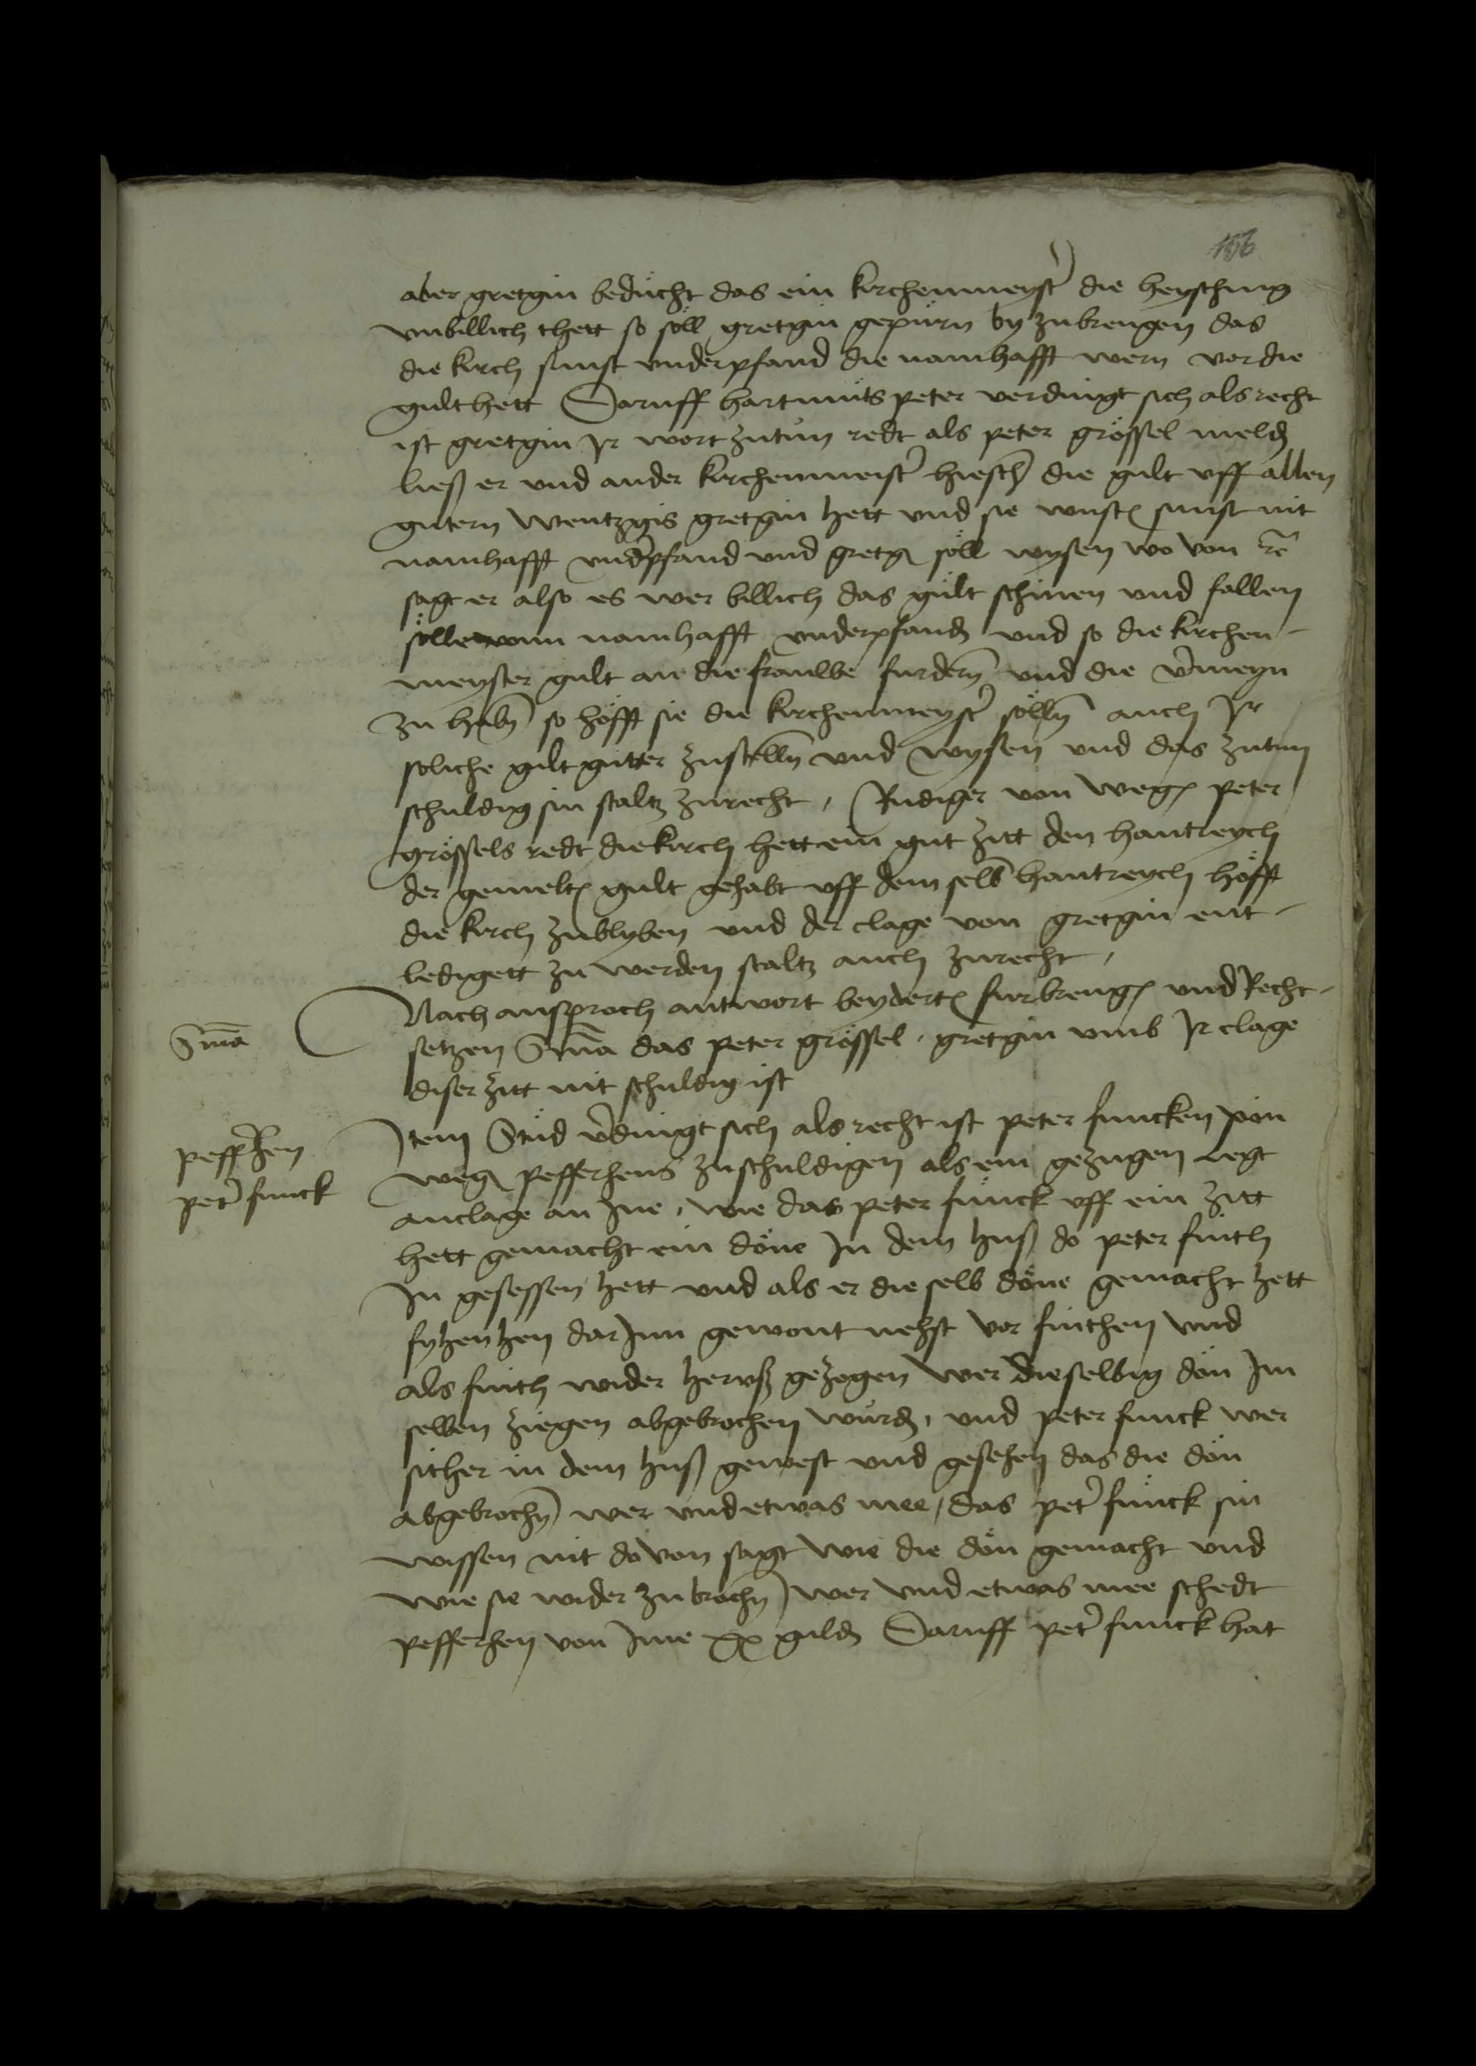 156
aber gretgin beducht das ein kirchenmeyst die heyschung
vnbillich thett so söll gretgin gepurn by zubrengen das
die kirch sunst vnderpfand die namhafft wern vor die
gult hett Daruff hartmuts peter verdingt sich als recht
ist gretgin Ir wort zutun redt als peter grössel meld
ließ er vnd ander kirchenmeist hiesch die gult vff allen
gutern wentzgis gretgin hett vnd sie wust sunst nit
namhafft vndpfand vnd gretg söll wysen wo von rc
sagt er also es wer billich das gult schinen vnd fallen
söllen vonn namhafft vnderpfand vnd so die kirchen-
meyster gult an die frauwe furdern vnd die vmeyn
zu habn so höfft sie die kirchenmeyst sölln auch Ir
soliche gult gutter zustelln vnd wysen vnd das zutun
schuldig sin staltz zurecht, Rudiger von weg peter
grössels redt die kirch hett ein gut zitt den hantreych
der gemelt gult gehabt vff dem selb hantreych höfft
die kirch zublyben vnd der clage von gretgin ent-
ledigett zu werden staltz auch zurecht,
Sma
Nach ansproch antwort beydert furbreng vnd Recht-
setzen Sma das peter grössel, gretgin vmb Ir clage
diser zitt nit schuldig ist
peffhen
pet funck
Item Stud vdingt sich als recht ist peter funcken von
weg pefferhens zuschuldigen als ein gezugen legt
anclage an Ine, wie das peter funck vff ein zitt
hett gemacht ein döne In dem huß do peter finth
In gesessen hett vnd als er die selb döne gemacht hett
fyhenhen dar Inn gewont nehst vor finthen vnd
als finth wider heruß gezogen wer die selbig dön Im
selben ziegen abgebrochen wurd, vnd peter funck wer
sither in dem huß gewest vnd gesehen das die dön
abgebrochn wer vnd etwas mee, das pet funck sin
wissen nit do von sagt wie die dön gemacht vnd
wie sie wider zu brochn wer vnd etwas mee schedt
pefferhen von Ime xx guld Daruff pet funck hat